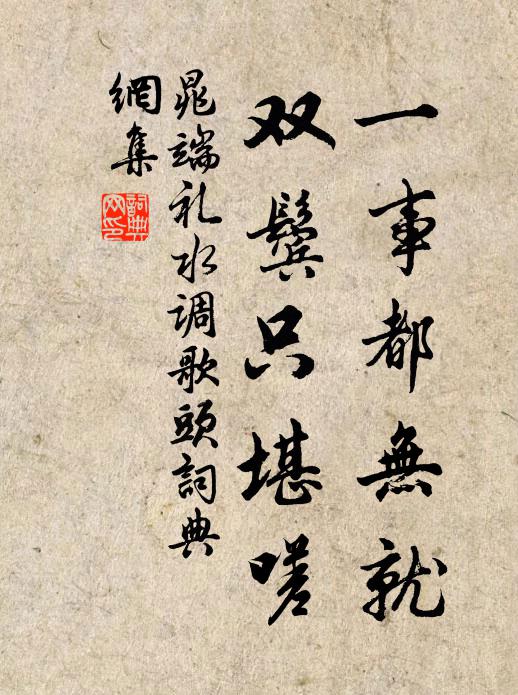 一事都無就
双鬓只堪嗟
晁端礼水调歌頭詞典
網集
詞典
网印